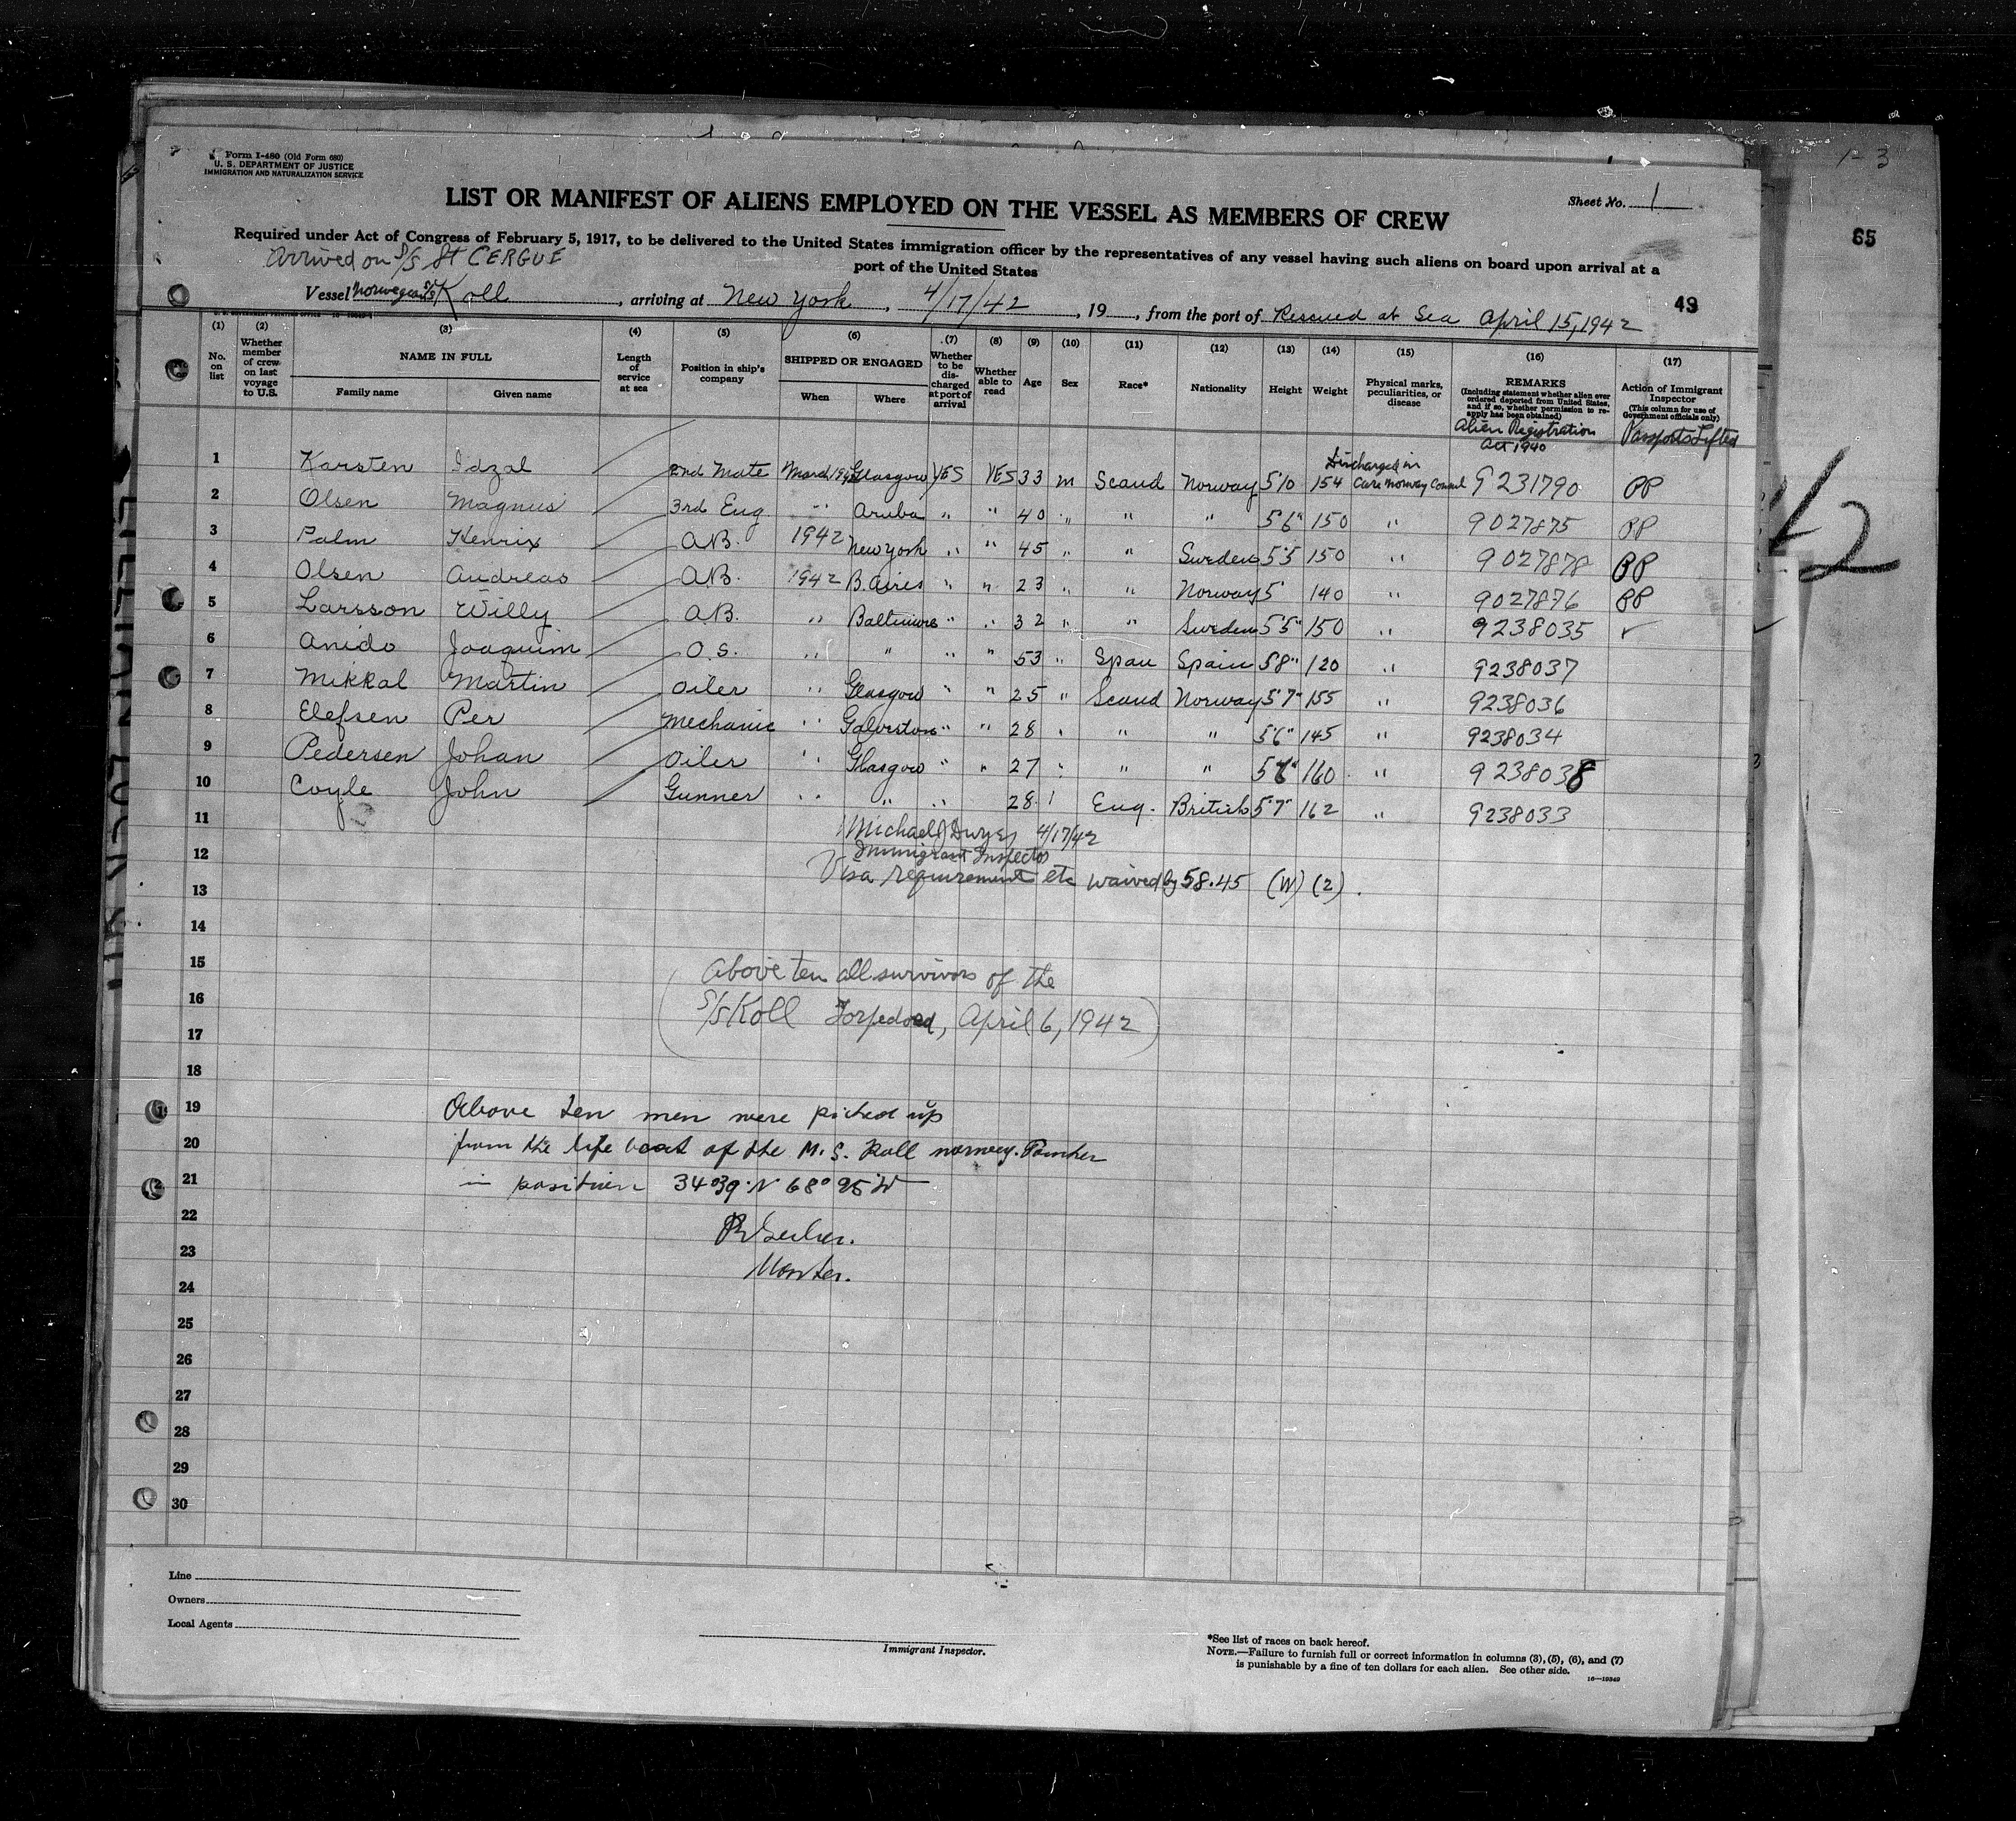 1-3
65
Form I-480 (Old Form 680)
U. S. DEPARTMENT OF JUSTICE
IMMIGRATION AND NATURALIZATION SERVICE
Sheet No. 1
LIST OR MANIFEST OF ALIENS EMPLOYED ON THE VESSEL AS MEMBERS OF CREW
Required under Act of Congress of February 5, 1917, to be delivered to the United States immigration officer by the representatives of any vessel having such aliens on board upon arrival at a
port of the United States
Arrived on S/S St CERGUE
Vessel Norwegian S/S Koll, arriving at New York, 4/17/42, 19, from the port of Rescued at Sea April 15, 1942
49
(1) No. on list
(2) Whether member of crew on last voyage to U.S.
(3) NAME IN FULL Family name Given name
(4) Length of service at sea
(5) Position in ship's company
(6) SHIPPED OR ENGAGED When Where
(7) Whether to be discharged at port of arrival
(8) Whether able to read
(9) Age
(10) Sex
(11) Race*
(12) Nationality
(13) Height
(14) Weight
(15) Physical marks, peculiarities, or disease
(16) REMARKS (Including statement whether alien ever ordered deported from United States, and if so, whether permission to re-apply has been obtained)
Alien Registration Act 1940
(17) Action of Immigrant Inspector (This column for use of Government officials only)
Passports Lifted
1 Karsten Idzal 2nd Mate March Glasgow YES YES 33 m Scand Norway 5'10 154 Discharged in Care Norway Consul 9231790 PP
2 Olsen Magnus 3rd Eng. " Aruba " " 40 " " " 5'6" 150 " 9027875 PP
3 Palm Henrix A.B. 1942 New York " " 45 " " Sweden 5'5 150 " 9027878 PP
4 Olsen Andreas A.B. 1942 B. Aires " " 23 " " Norway 5' 140 " 9027876 PP
5 Larsson Willy A.B. " Baltimore " " 32 " " Sweden 5'5" 150 " 9238035 ✓
6 Anido Joaquim O.S. " " " " 53 " Span Spain 5'8" 120 " 9238037
7 Mikkal Martin Oiler " Glasgow " " 25 " Scand Norway 5'7" 155 " 9238036
8 Elefsen Per Mechanic " Galveston " " 28 " " " 5'6" 145 " 9238034
9 Pedersen Johan Oiler " Glasgow " " 27 " " " 5'6" 160 " 9238038
10 Coyle John Gunner " " " 28 Eng. British 5'7" 162 " 9238033
11 Michael J Dwyer 4/17/42
12 Immigrant Inspector
13 Visa requirement etc waived by 58.45 (W) (2).
14
15 Above ten all survivors of the
16
17 S/S Koll Torpedoed, April 6, 1942
18
19 Above ten men were picked up
20 from the life boat of the M.S. Koll
21 in position 34°39'N 68°25'W
22
23
24 Master.
25
26
27
28
29
30
42
Line
Owners
Local Agents
Immigrant Inspector.
*See list of races on back hereof.
NOTE.—Failure to furnish full or correct information in columns (3), (5), (6), and (7)
is punishable by a fine of ten dollars for each alien. See other side.
16—19349